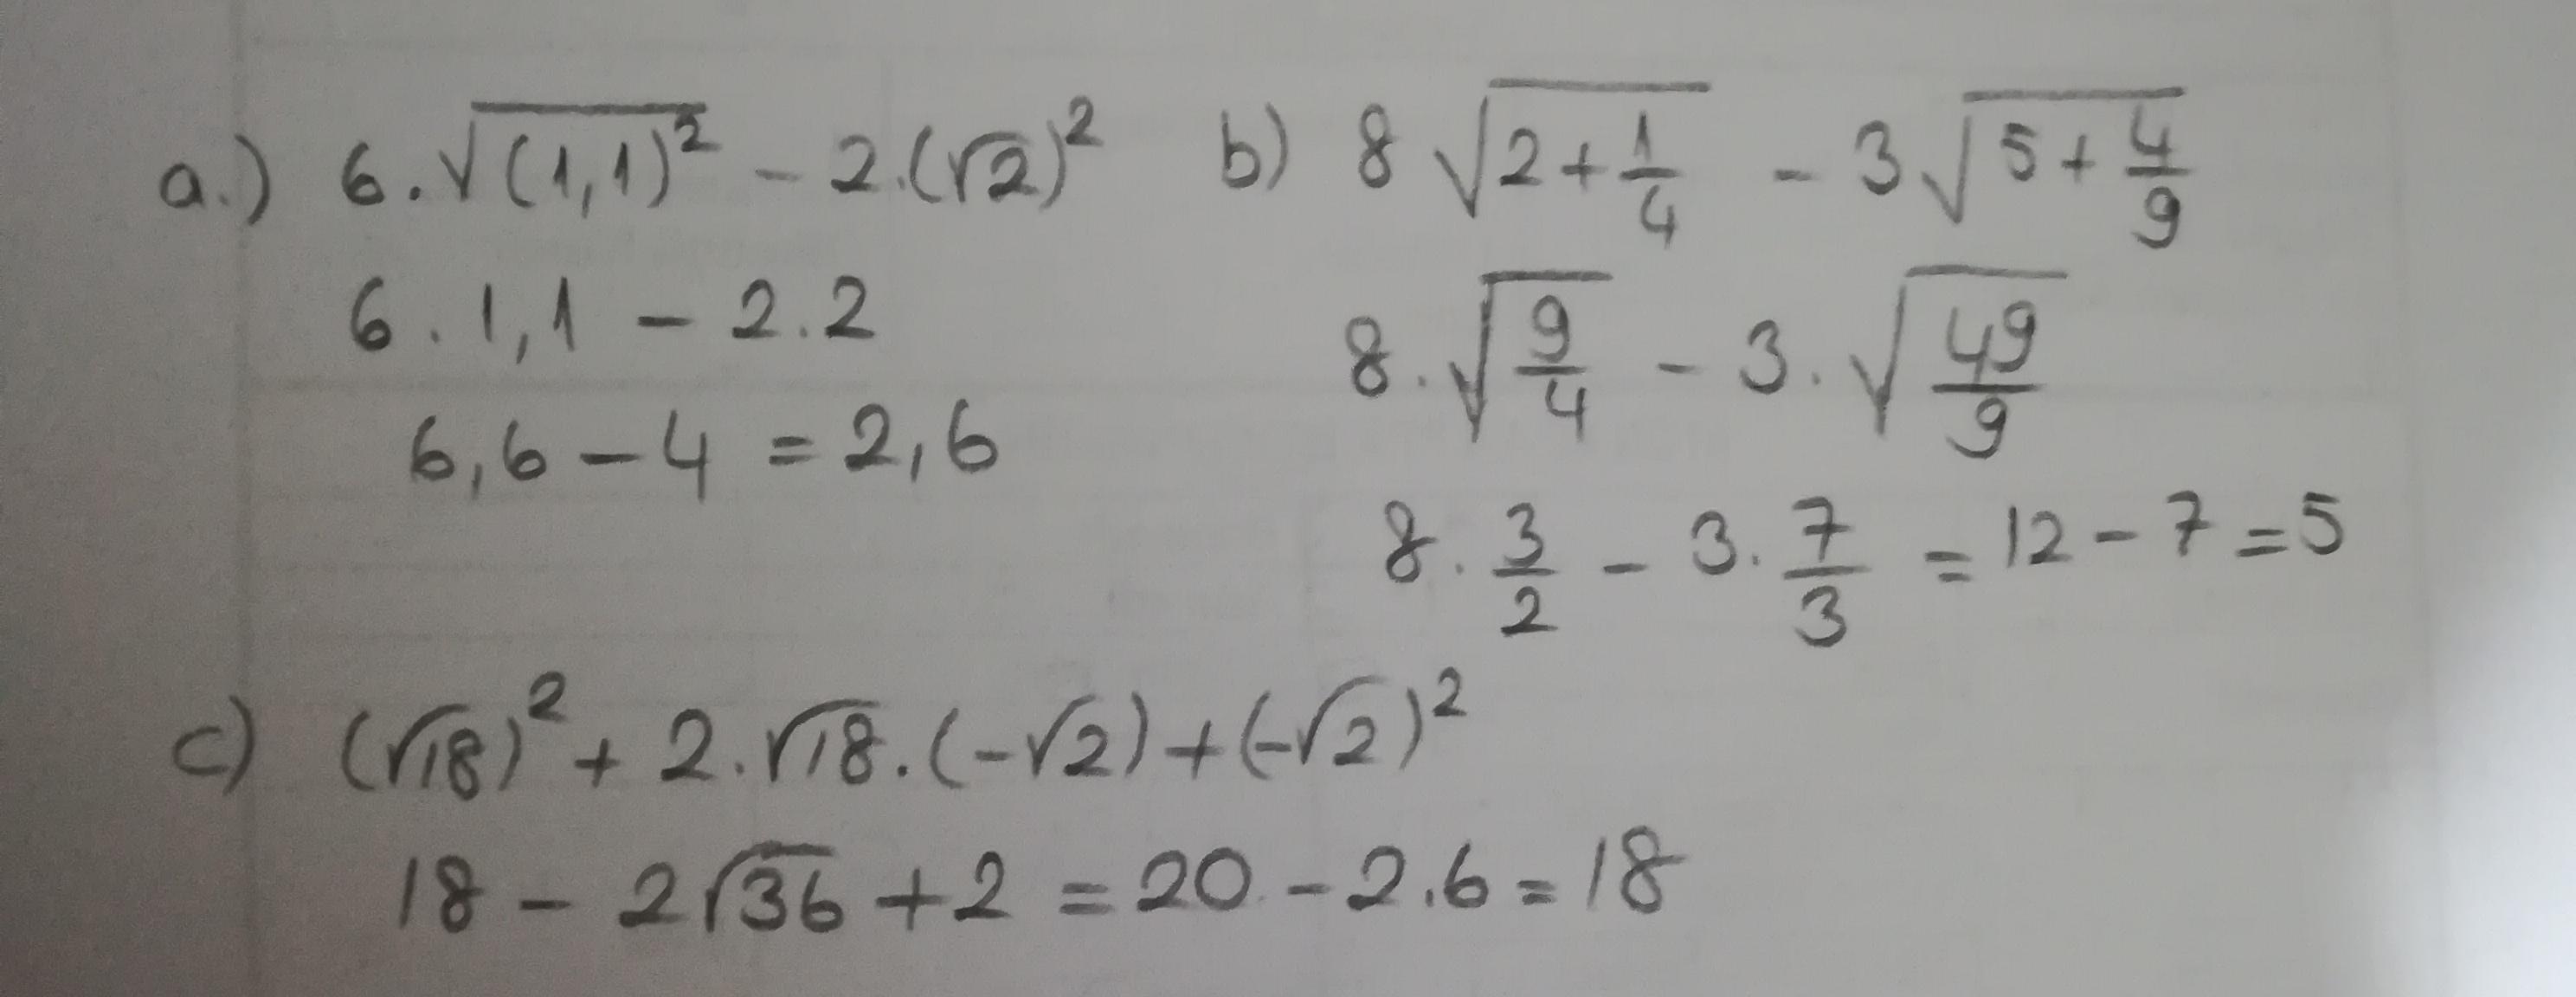 a.) 6.√(1,1)² - 2.(√2)²
6 . 1,1 - 2.2
6,6 - 4 = 2,6
b) 8 √(2+1/4) - 3√(5+4/9)
8.√(9/4) - 3.√(49/9)
8. 3/2 - 3. 7/3 = 12 - 7 = 5
c) (√18)² + 2.√18.(-√2)+(-√2)²
18 - 2√36 +2 = 20 - 2.6 = 18